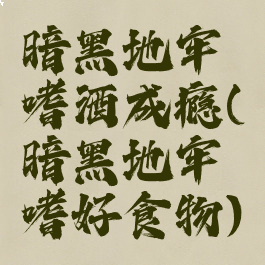 暗黑地牢
嗜酒成瘾(
暗黑地牢
嗜好食物)